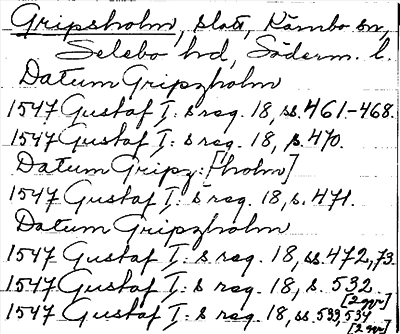 Gripsholm, slott, Kärnbo sn,
Selebo hd, Söderm. l.
Datum Gripzholm
1547 Gustaf I: s reg. 18, ss. 461-468.
1547 Gustaf I: s reg. 18, s. 470.
Datum Gripz:[holm]
1547 Gustaf I: s reg. 18, s. 471.
Datum Gripzholm
1547 Gustaf I: s reg. 18, ss. 472, 73.
1547 Gustaf I: s reg. 18, s. 532
[2 ggr]
1547 Gustaf I: s reg. 18, ss. 533, 534
[2 ggr]